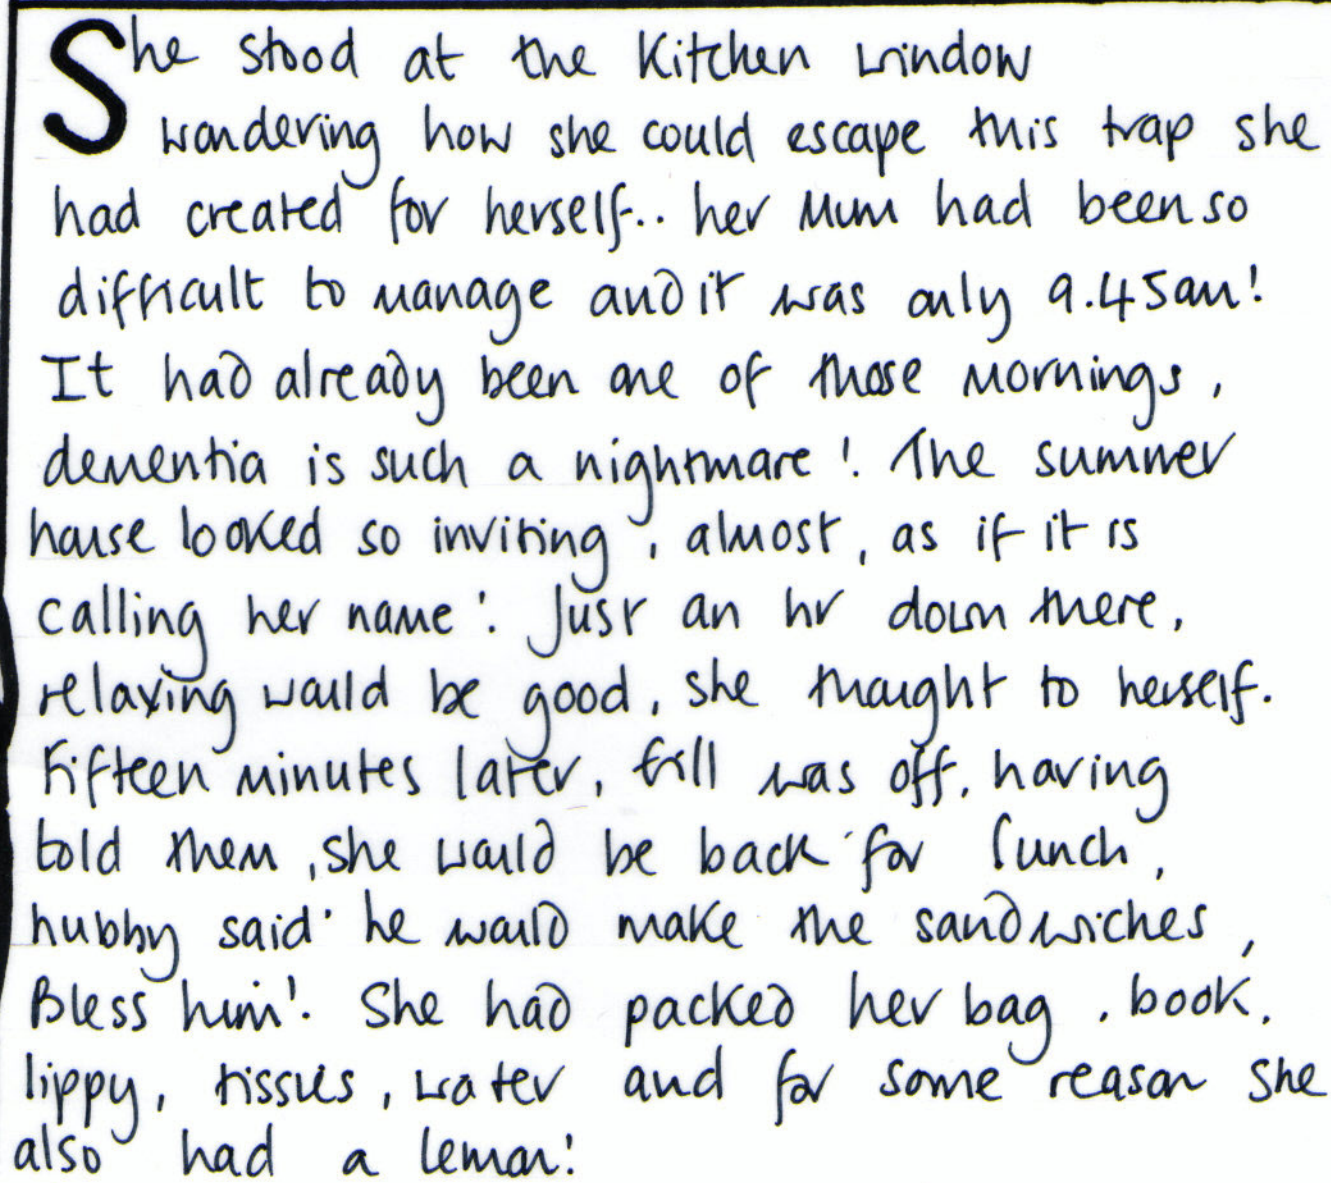 She stood at the Kitchen window
wondering how she could escape this trap she
had created for herself.. her Mum had been so
difficult to manage and it was only 9.45am!
It had already been one of those mornings,
dementia is such a nightmare! The summer
house looked so inviting, almost, as if it is
calling her name! Just an hr down there,
relaxing would be good, she thought to herself.
Fifteen minutes later, Gill was off, having
told them, she would be back for lunch,
hubby said he would make the sandwiches,
Bless him! She had packed her bag, book,
lippy, tissues, water and for some reason she
also had a lemon!